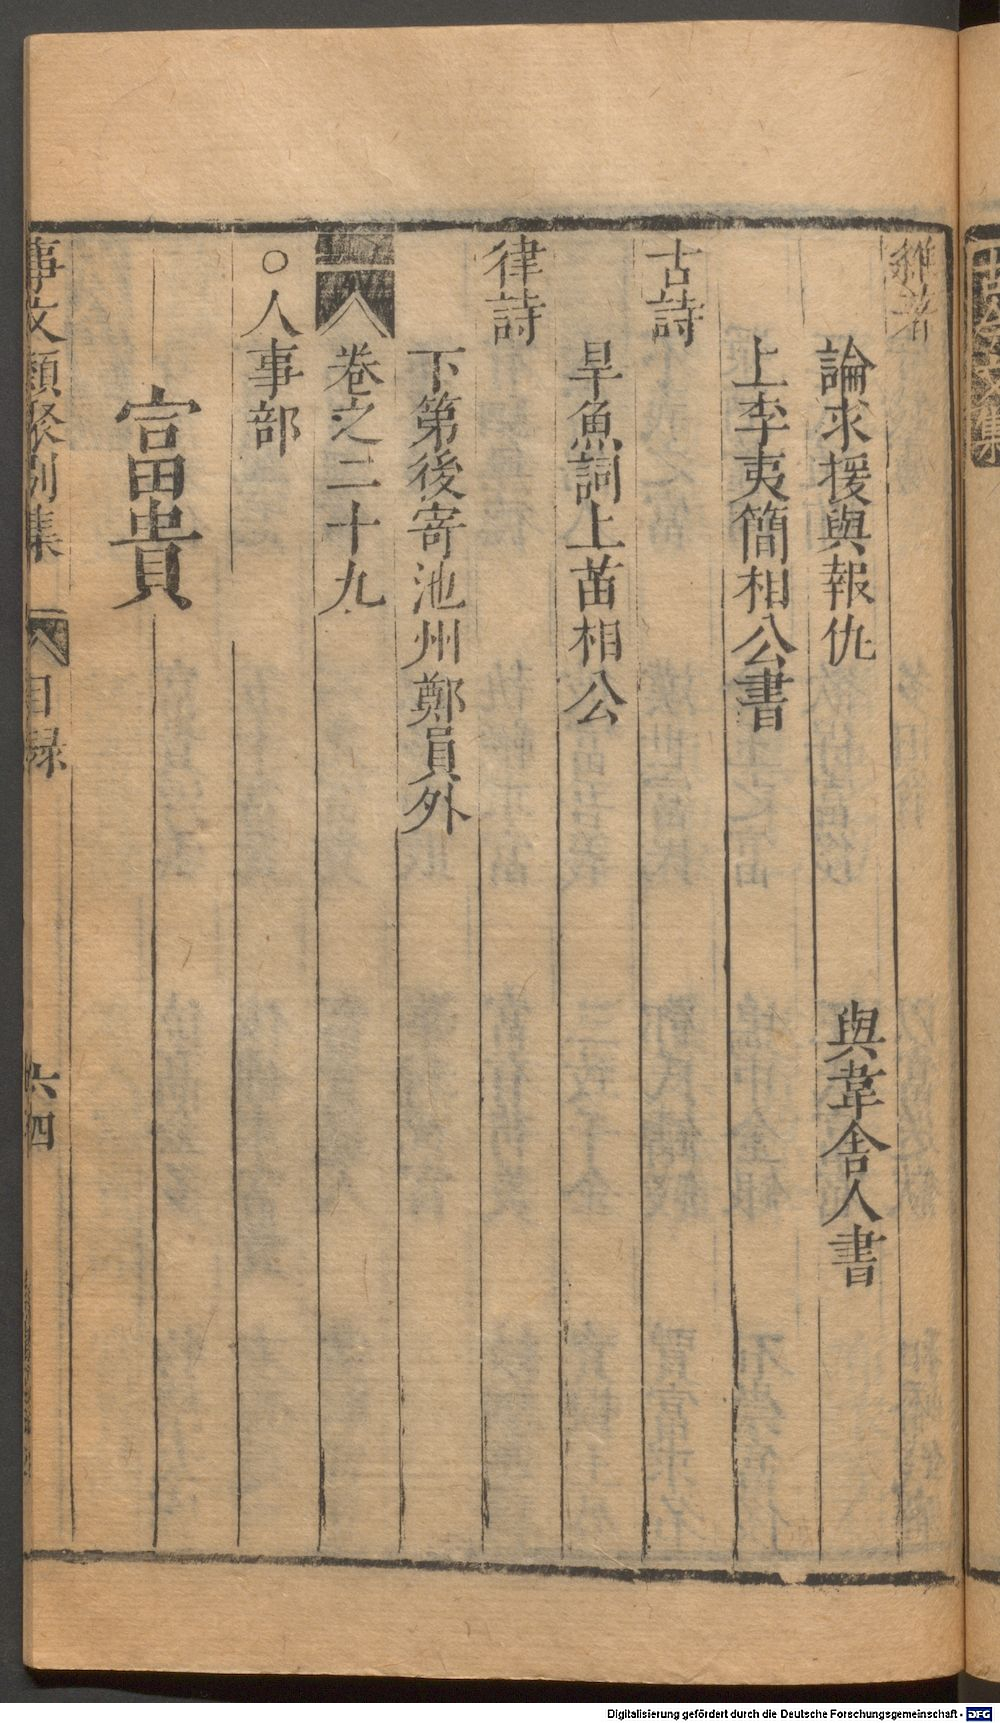 雜著
論求援與報仇　與韋舍人書
上李夷簡相公書
古詩
旱魚詞上苗相公
律詩
下第後寄池州鄭員外
卷之二十九
○人事部
富貴
事文類聚別集　目録　六四
Digitalisierung gefördert durch die Deutsche Forschungsgemeinschaft - DFG